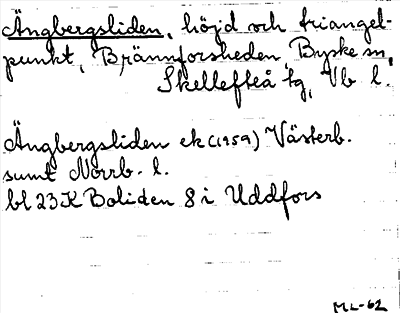 Ängbergsliden, höjd och triangel-
punkt, Brännforsheden, Byske sn,
Skellefteå tg, Vb l.
Ängbergsliden ek (1959) Västerb.
samt Norrb. l.
bl 23 K Boliden 8 i Uddfors
ML-62